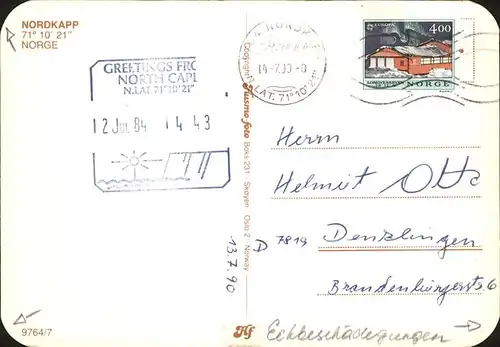 NORDKAPP
71° 10' 21"
NORGE
GREETINGS FRO
NORTH CAPE
N.LAT.71°10'21"
12 JUL 84 14 43
LAT. 71° 10' 21"
EUROPA
4.00
NORGE
Herrn
Helmut Otto
D 7819 Denzlingen
Brandenburgerstr. 6
13.7.90
Copyright: Husmo foto Boks 231 Skøyen Oslo 2 Norway
Hf
Eckbeschädigungen
9764/7